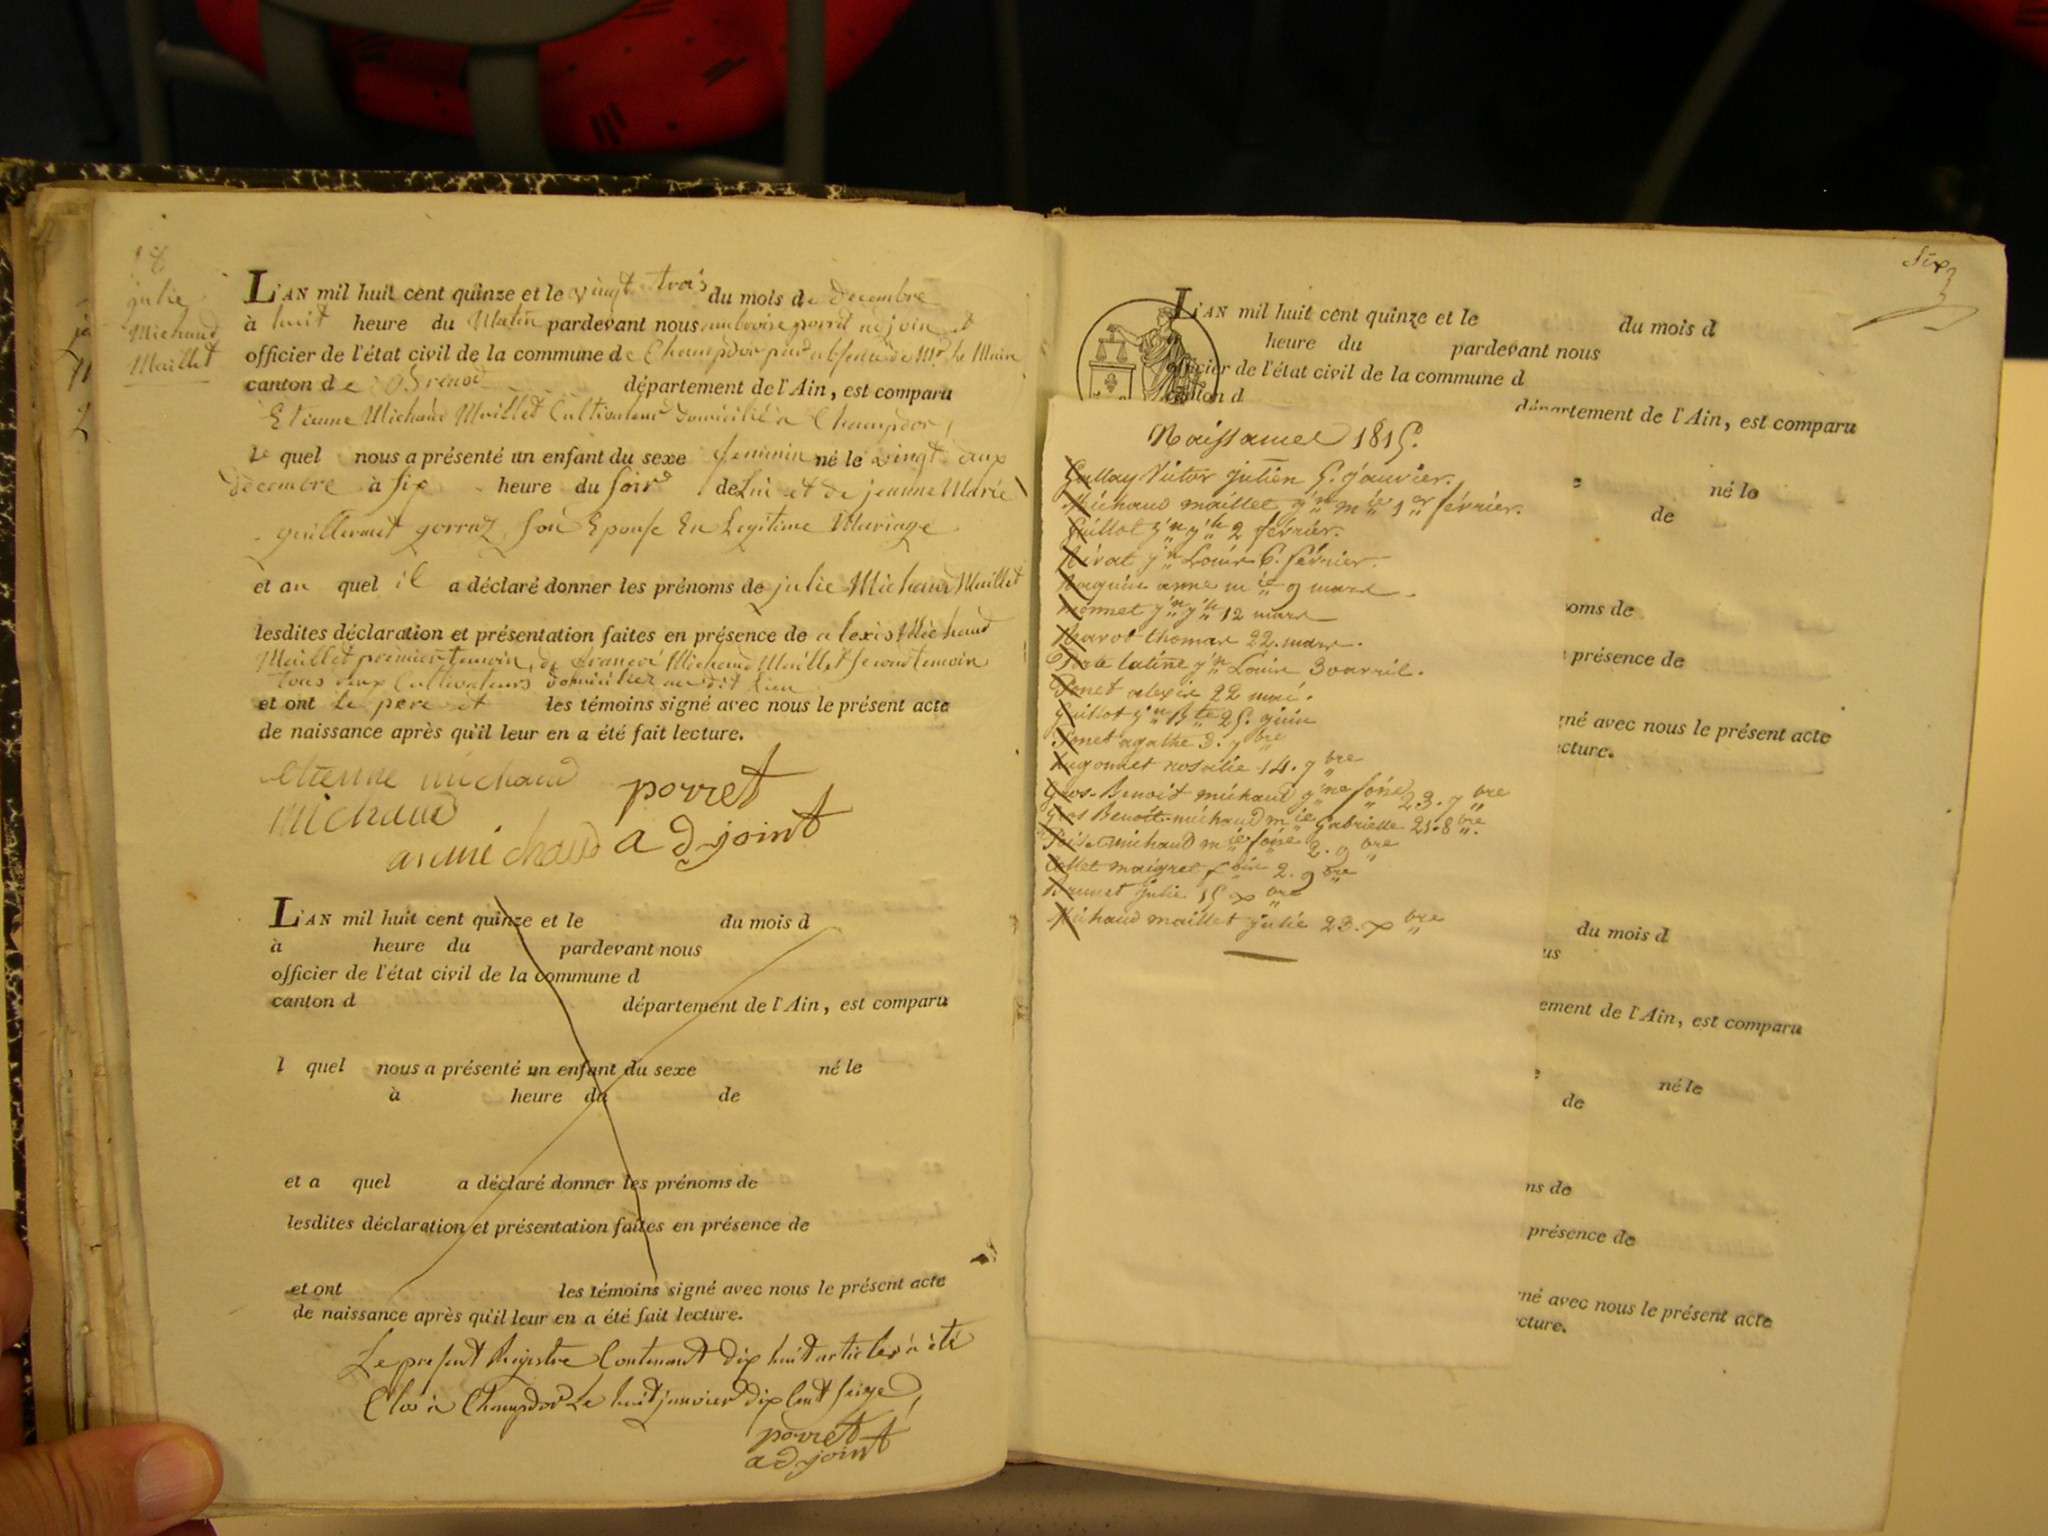 18
julie
Michaud
Maillet
L'AN mil huit cent quinze et le vingt trois du mois de decembre
à huit heure du Matin pardevant nous ambroise porret adjoint et
officier de l'état civil de la commune de Champdor pour absence de Mr. le Maire
canton de Brenod département de l'Ain, est comparu
Etienne Michaud Maillet Cultivateur domicilié a Champdor,
le quel nous a présenté un enfant du sexe feminin né le vingt deux
decembre à six heure du soir de Lui et de jeanne Marie
guillermet gorraz son Epouse En Legitime Mariage
et au quel il a déclaré donner les prénoms de julie Michaud Maillet
lesdites déclaration et présentation faites en présence de alexis Michaud
Maillet premier temoin, de francois Michaud Maillet second temoin
tous deux Cultivateurs domiciliez au dit lieu
et ont le pere et les témoins signé avec nous le présent acte
de naissance après qu'il leur en a été fait lecture.
etienne michaud porret
michaud
michaud adjoint
L'AN mil huit cent quinze et le du mois d
à heure du pardevant nous
officier de l'état civil de la commune d
canton d département de l'Ain, est comparu
l quel nous a présenté un enfant du sexe né le
à heure du de
et a quel a déclaré donner les prénoms de
lesdites déclaration et présentation faites en présence de
et ont les témoins signé avec nous le présent acte
de naissance après qu'il leur en a été fait lecture.
Le present Registre Contenant dix huit articles a été
Clos a Champdor Le huit janvier dix huit seize,
porret
adjoint
six
L'AN mil huit cent quinze et le du mois d
heure du pardevant nous
officier de l'état civil de la commune d
canton d
département de l'Ain, est comparu
Naissances 1815.
Callay Victor julien 5. janvier.
Michaud maillet jn mie 1er février.
Guillot jn jh 2 février.
Nivat jn Louis 6. février.
anne mie 9 mars.
Monnet jn jh 12 mars
Savot thomas 22. mars.
jn Louis 30 avril.
Penet alexis 22 mai.
Guillot jn Bte 25. juin
Penet agathe 3. 7bre
hugonnet rosalie 14. 7bre
Gros-Benoit michaud jne 23. 7bre
Gros Benoit-michaud mie Gabrielle 21. 8bre.
michaud mie 2. 9bre
Collet maigret 2. 9bre
Brunet julie 15 xbre
Michaud maillet julie 23. xbre
né le
de
oms de
présence de
gné avec nous le présent acte
ecture.
du mois d
us
ement de l'Ain, est comparu
né le
de
ns de
présence de
né avec nous le présent acte
cture.